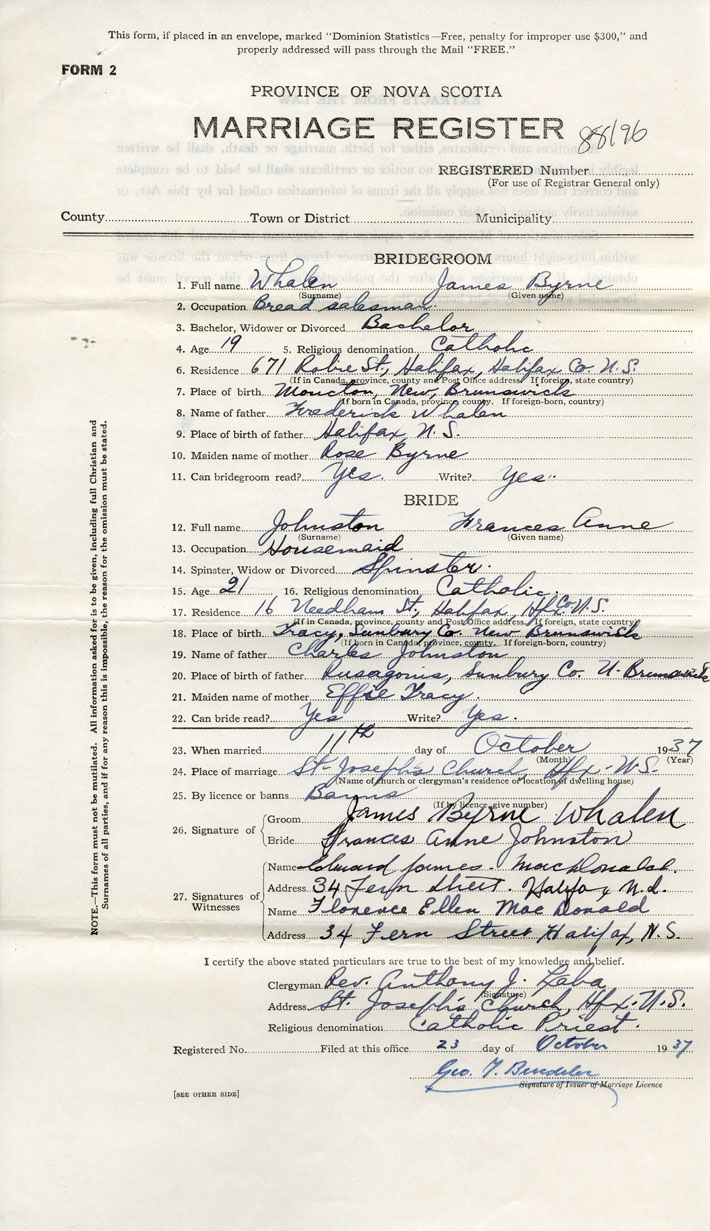 This form, if placed in an envelope, marked "Dominion Statistics—Free, penalty for improper use $300," and
properly addressed will pass through the Mail "FREE."
FORM 2
PROVINCE OF NOVA SCOTIA
MARRIAGE REGISTER 88196
REGISTERED Number
(For use of Registrar General only)
County Town or District Municipality
BRIDEGROOM
1. Full name Whalen James Byrne
(Surname) (Given name)
2. Occupation Bread salesman
3. Bachelor, Widower or Divorced Bachelor
4. Age 19 5. Religious denomination Catholic
6. Residence 671 Robie St., Halifax, Halifax Co. N.S.
(If in Canada, province, county and Post Office address. If foreign, state country)
7. Place of birth Moncton, New Brunswick
(If born in Canada, province, county. If foreign-born, country)
8. Name of father Frederick Whalen
9. Place of birth of father Halifax N.S.
10. Maiden name of mother Rose Byrne
11. Can bridegroom read? Yes. Write? Yes.
BRIDE
12. Full name Johnston Frances Anne
(Surname) (Given name)
13. Occupation Housemaid
14. Spinster, Widow or Divorced Spinster.
15. Age 21 16. Religious denomination Catholic.
17. Residence 16 Needham St., Halifax, Hfx Co. N.S.
(If in Canada, province, county and Post Office address. If foreign, state country)
18. Place of birth Tracy, Sunbury Co. New Brunswick
(If born in Canada, province, county. If foreign-born, country)
19. Name of father Charles Johnston
20. Place of birth of father Rusagonis, Sunbury Co. N. Brunswick
21. Maiden name of mother Effie Tracy.
22. Can bride read? Yes Write? Yes.
23. When married 11th day of October 1937
(Month) (Year)
24. Place of marriage St. Joseph's Church, Hfx. N.S.
(Name of church or clergyman's residence or location of dwelling house)
25. By licence or banns Banns
(If by licence, give number)
26. Signature of Groom James Byrne Whalen
Bride Frances Anne Johnston
27. Signatures of Witnesses
Name Edward James MacDonald.
Address 34 Fern Street. Halifax N.S.
Name Florence Ellen MacDonald
Address 34 Fern Street Halifax, N.S.
I certify the above stated particulars are true to the best of my knowledge and belief.
Clergyman Rev. Anthony J.
(Signature)
Address St. Joseph's Church, Hfx. N.S.
Religious denomination Catholic Priest.
Registered No. Filed at this office 23 day of October 1937
Geo.
Signature of Issuer of Marriage Licence
[SEE OTHER SIDE]
NOTE.—This form must not be mutilated. All information asked for is to be given, including full Christian and
Surnames of all parties, and if for any reason this is impossible, the reason for the omission must be stated.